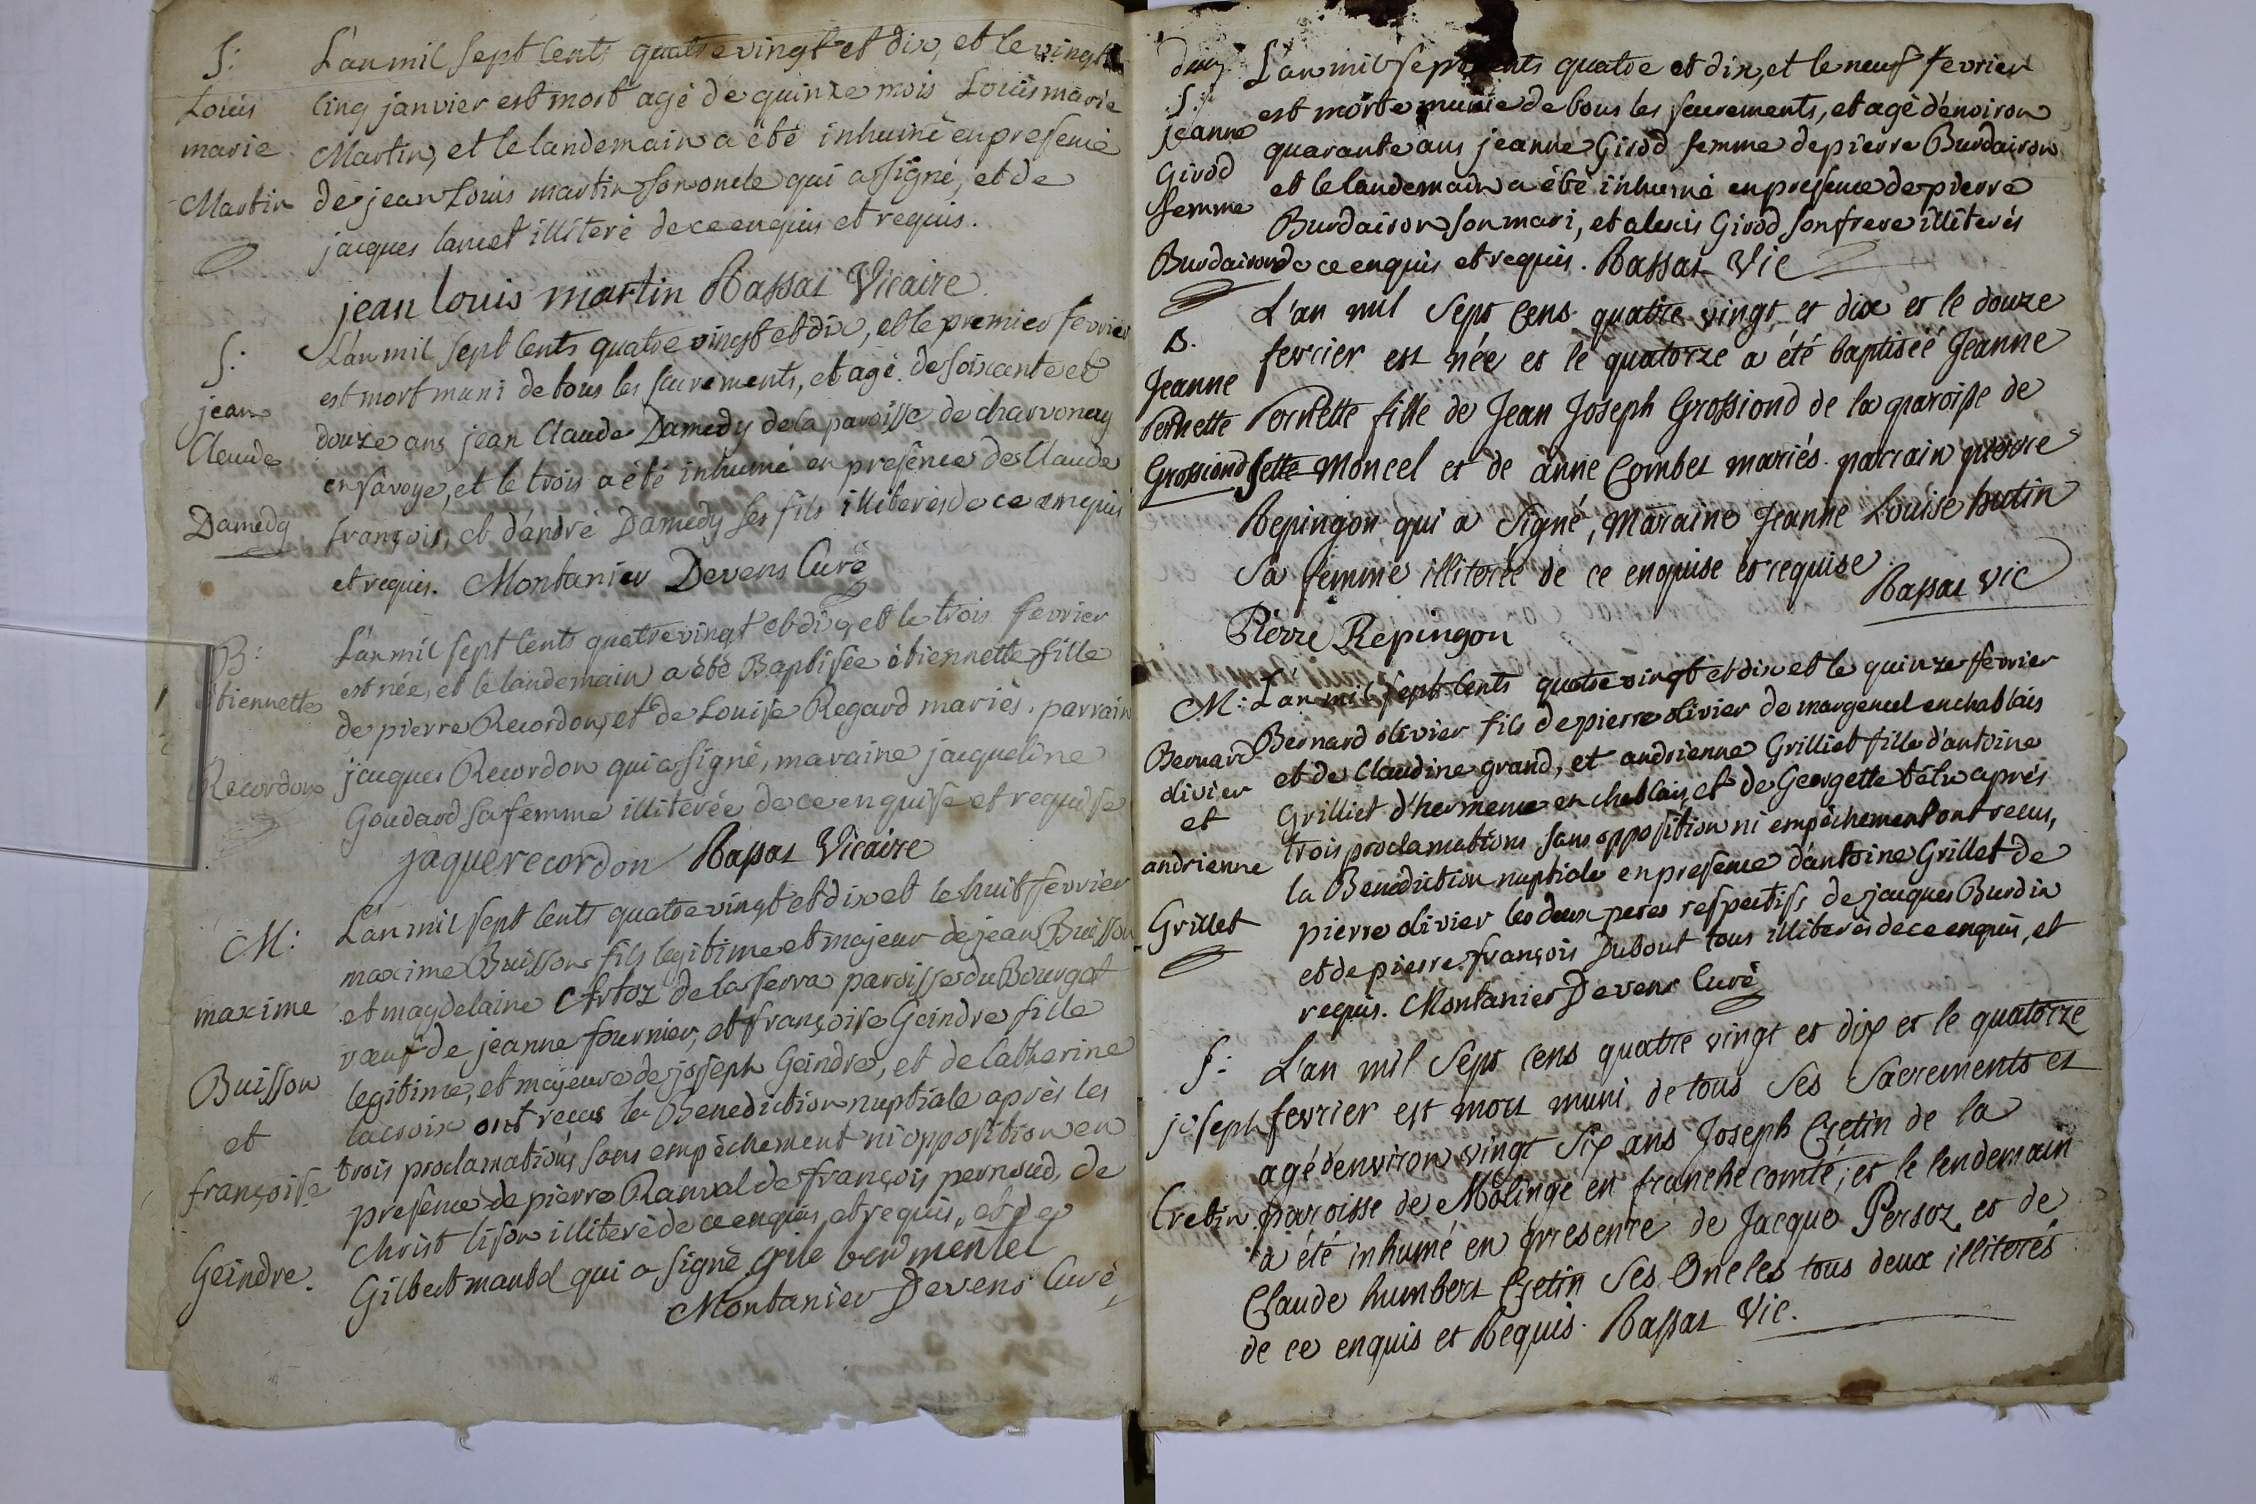 S:
Louis
marie
Martin
L'an mil sept cents quatre vingt et dix, et le vingt
cinq janvier est mort agé de quinze mois Louis marie
Martin, et le landemain a été inhumé en presence
de jean Louis martin son oncle qui a signé, et de
jacques lancet illiteré de ce enquis et requis.
jean louis martin Bassat Vicaire
S:
jean
Claude
Damedy
L'an mil sept cents quatre vingt et dix, et le premier fevrier
est mort muni de tous les sacrements, et agé de soixante et
douze ans jean Claude Damedy de la paroisse de charvonay
en savoye, et le trois a été inhumé en presence de Claude
françois, et d'andré Damedy ses fils illiterés de ce enquis
et requis. Montanier Devens Curé
B:
étiennette
Recordon
L'an mil sept cents quatre vingt et dix, et le trois fevrier
est née, et le landemain a été Baptisée étiennette fille
de pierre Recordon, et de Louise Regard mariés. parrain
jacques Recordon qui a signé, maraine jacqueline
Goudard sa femme illiterée de ce enquise et requise
jaque recordon Bassat Vicaire
M:
maxime
Buisson
et
françoise
Geindre.
L'an mil sept cents quatre vingt et dix et le huit fevrier
maxime Buisson fils legitime et majeur de jean Buisson
et magdelaine Artoz de la serra paroisse du Bourget
vœuf de jeanne fournier, et françoise Geindre fille
legitime, et majeure de joseph Geindre, et de Catherine
lacroix ont recus la Benediction nuptiale après les
trois proclamations sans empêchement ni opposition en
presence de pierre Ranval de françois pernoud, de
Christ lison illiteré de ce enquis et requis, et de
Gilbert mantel qui a signé gile ber mentel
Montanier Devens Curé
S:
jeanne
Girod
femme
Burdairon
L'an mil sept cents quatre et dix, et le neuf fevrier
est morte munie de tous les sacrements, et agé d'environ
quarante ans jeanne Girod femme de pierre Burdairon
et le landemain a été inhumé en presence de pierre
Burdairon son mari, et alexis Girod son frere illiterés
de ce enquis et requis. Bassat Vic
B.
Jeanne
Pernette
Grossiond
L'an mil sept cens quatre vingt et dix et le douze
fevrier est née et le quatorze a été baptiseé Jeanne
Pernette fille de Jean Joseph Grossiond de la paroisse de
Sette Moncel et de anne Combet mariés. parrain pierre
Repingon qui a signé, maraine Jeanne Louise hutin
sa femme illiterée de ce enquise et requise
Bassat Vic
Pierre Repingon
M:
Bernard
olivier
et
andrienne
Grillet
L'an mil sept cents quatre vingt et dix et le quinze fevrier
Bernard olivier fils de pierre olivier de margencel en chablais
et de Claudine grand, et andrienne Grilliet fille d'antoine
Grilliet d'hermence en chablais, et de Georgette têtu après
trois proclamations sans opposition ni empêchement ont recus,
la Benediction nuptiale en presence d'antoine Grillet de
pierre olivier les deux peres respectifs de jacques Burdin
et de pierre françois Dubout tous illiterés de ce enquis, et
requis. Montanier Devens Curé
S:
joseph
Cretin
L'an mil sept cens quatre vingt et dix et le quatorze
fevrier est mort muni de tous ses sacrements et
agé d'environ vingt six ans Joseph Cretin de la
paroisse de Molinge en franche comté, et le lendemain
a été inhumé en presence de Jacque Persoz et de
Claude humbert Cretin ses oncles tous deux illiterés
de ce enquis et Requis. Bassat Vic.